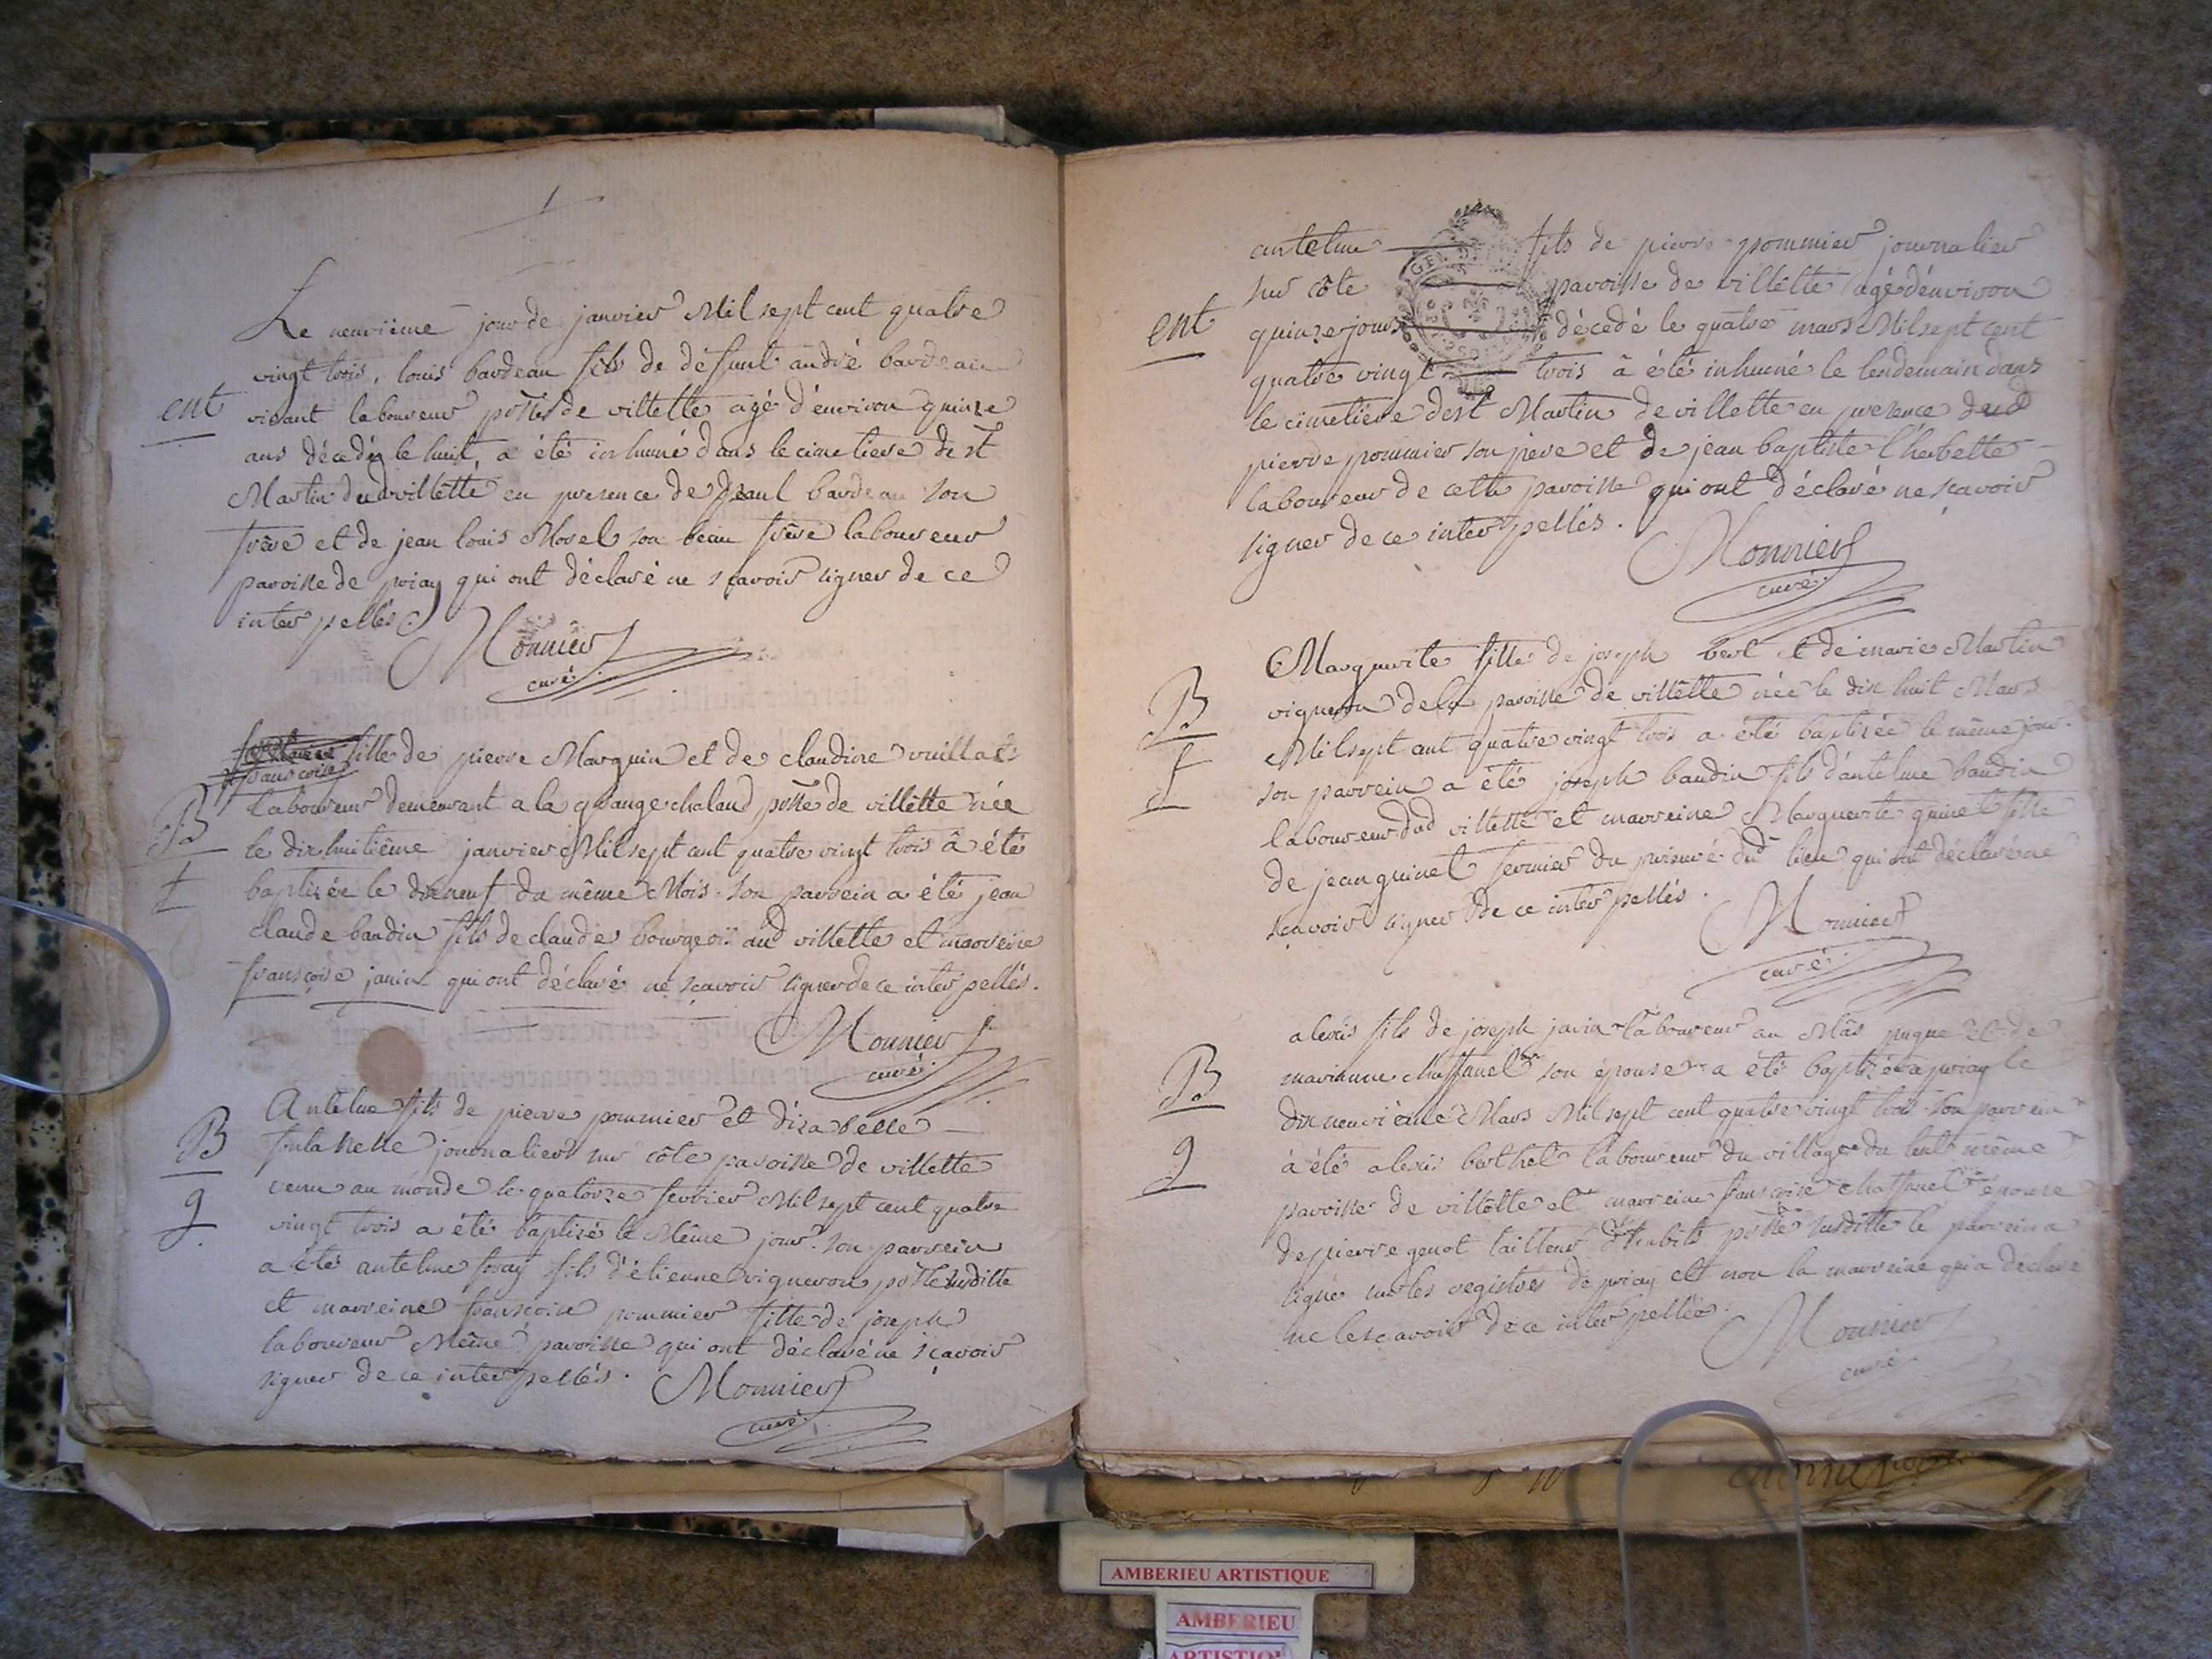 Le neuvième jour de janvier Mil sept cent quatre
vingt trois, louis bardeau fils de défunt andré bardeau
ent
vivant laboureur poïsse de villette agé d'environ quinze
ans décédé le huit, a été inhumé dans le cimetiere de st
Martin dud villette en presence de paul bardeau son
frère et de jean louis Morel son beau frère laboureur
paroisse de priay qui ont déclaré ne sçavoir signer de ce
inter pellés
Monnier
curé
françoise
fille de pierre Marquin et de claudine vuillat
B
f
laboureur demeurant a la grange chaland poïsse de villette née
le dix huitième janvier Mil sept cent quatre vingt trois â été
baptisée le dix neuf du même Mois. son parrein a été jean
claude baudin fils de claude bourgeois aud villette et marreine
françoise janin qui ont déclaré ne sçavoir signer de ce inter pellés.
Monnier
curé
B
g
Antelme fils de pierre pommier et d'isabelle
journalier sur côte paroisse de villette
venu au monde le quatorze fevrier Mil sept cent quatre
vingt trois a été baptisé le Même jour. son parrein
a été antelme fils d'étienne vigneron poïsse susditte
et marreine françoise pommier fille de joseph
laboureur Même paroisse qui ont déclaré ne sçavoir
signer de ce inter pellés.
Monnier
curé
antelme fils de pierre pommier journalier
sur côte paroisse de villette agé d'environ
ent
quinze jours décédé le quatre mars Mil sept cent
quatre vingt trois â été inhumé le lendemain dans
le cimetière de st Martin de villette en presence dud
pierre pommier son pere et de jean baptiste l'herbette
laboureur de cette paroisse qui ont déclaré ne sçavoir
signer de ce inter pellés.
Monnier
curé
B
f
Marguerite fille de joseph et de marie Martin
vigneron de la paroisse de villette née le dix huit Mars
Mil sept cent quatre vingt trois a été baptisée le même jour.
son parrein a été joseph baudin fils d'antelme baudin
laboureur dud villette et marreine Marguerite guinet fille
de jean guinet fermier du prieuré dud lieu qui ont déclaré ne
sçavoir signer de ce inter pellés.
Monnier
curé
B
g
alexis fils de joseph janin laboureur au Mâs et de
marianne chaffanel son épouse a été baptisé a priay le
dix neuvième Mars Mil sept cent quatre vingt trois son parrein
à été alexis berthet laboureur du village du même
paroisse de villette et marreine françoise chaffanel épouse
de pierre genot tailleur d'habits poïsse susditte le parrein a
signé sur les registres de priay et non la marreine qui a déclaré
ne le sçavoir de ce inter pellée.
Monnier
curé
AMBERIEU ARTISTIQUE
AMBERIEU
ARTISTIQUE